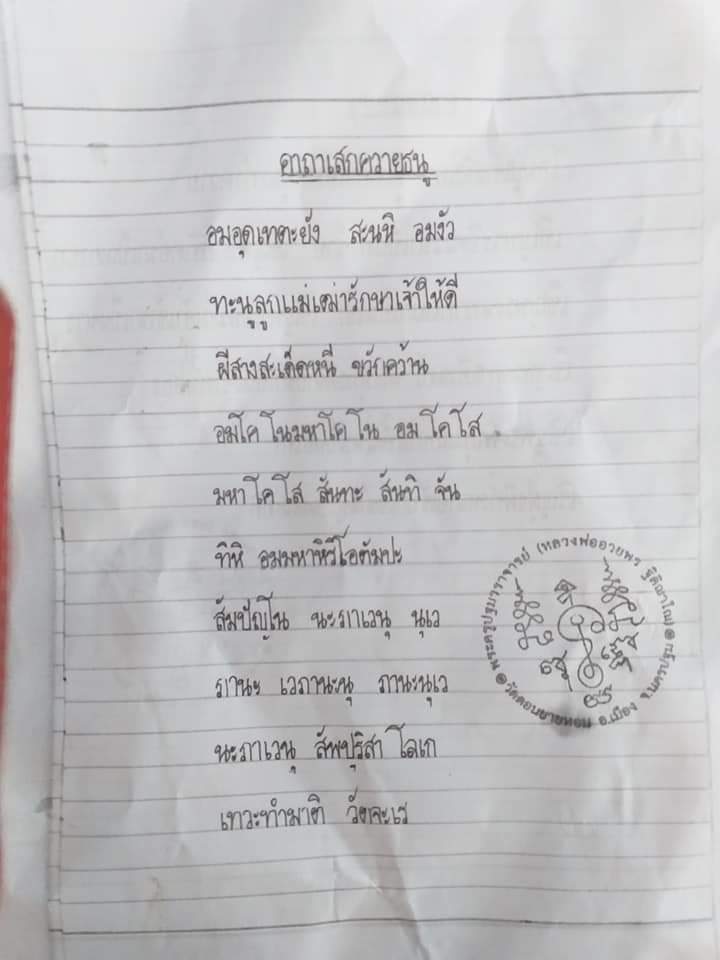 คาถาเสกควายธนู
อมอุดเทตะยัง สะนหิ อมงัว
ทะนูลูกแม่เฒ่ารักษาเจ้าให้ดี
ผีสางสะเด็ดหนี ขวักคว้าน
อมโคโนมหาโคโน อมโคโส
มหาโคโส สันทะ สันทิ จัน
ทิหิ อมมหาหิริโอตัมปะ
สัมปัญโน นะภาเวนุ นุเว
ภานะ เวภานะนุ ภานะนุเว
นะภาเวนุ สัพปุริสา โลเก
เทวะทำมาติ วัตจะเร
พระครูปฐมวราจารย์ (หลวงพ่ออวยพร ฐิติญาโณ)
วัดดอนยายหอม อ.เมือง จ.นครปฐม